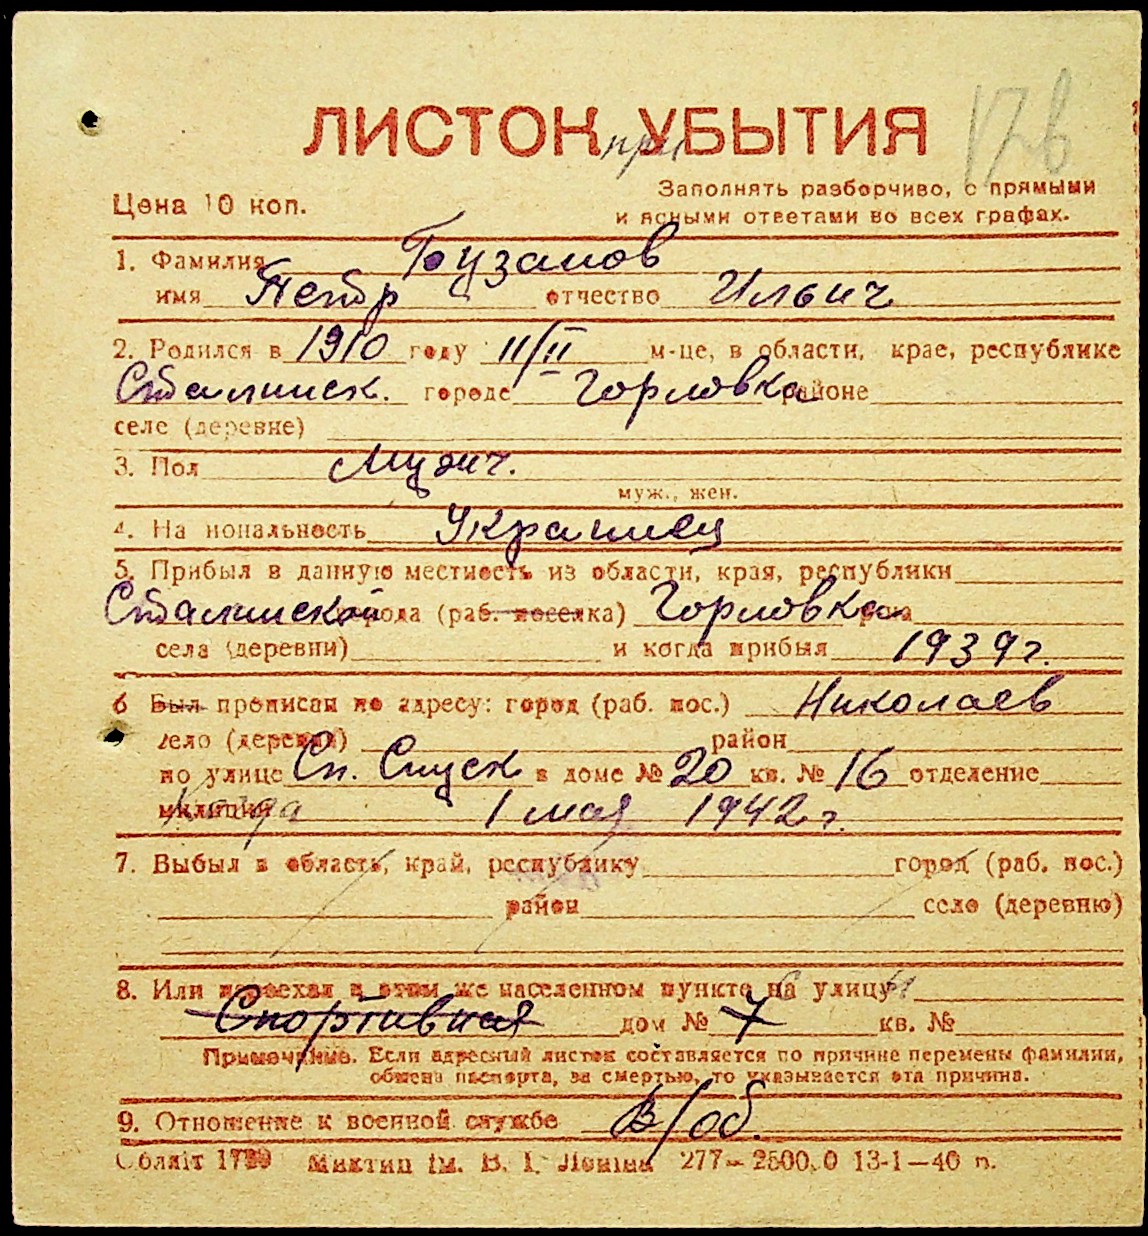 ЛИСТОК при УБЫТИЯ
Цена 10 коп.
Заполнять разборчиво, с прямыми
и ясными ответами во всех графах.
1. Фамилия Бузанов
имя Петр отчество Ильич
2. Родился в 1910 году 11/II м-це, в области, крае, республике
Сталинск. городе Горловка районе
селе (деревне)
3. Пол Мужич.
муж., жен.
4. Национальность Украинец
5. Прибыл в данную местность из области, края, республики
Сталинской города (раб. поселка) Горловка
села (деревни) и когда прибыл 1939 г.
6 Был прописан по адресу: город (раб. пос.) Николаев
село (деревня) район
по улице Сп. Спуск в доме № 20 кв. № 16 отделение
милиции Когда 1 мая 1942 г.
7. Выбыл в область, край, республику город (раб. пос.)
район село (деревню)
8. Или переехал в этом же населенном пункте на улицу
Спортивная дом № 7 кв. №
Примечание. Если адресный листок составляется по причине перемены фамилии,
обмена паспорта, за смертью, то указывается эта причина.
9. Отношение к военной службе В/об.
Обліт 1729 Миктип ім. В. І. Леніна 277—2500.0 13-1—40 п.